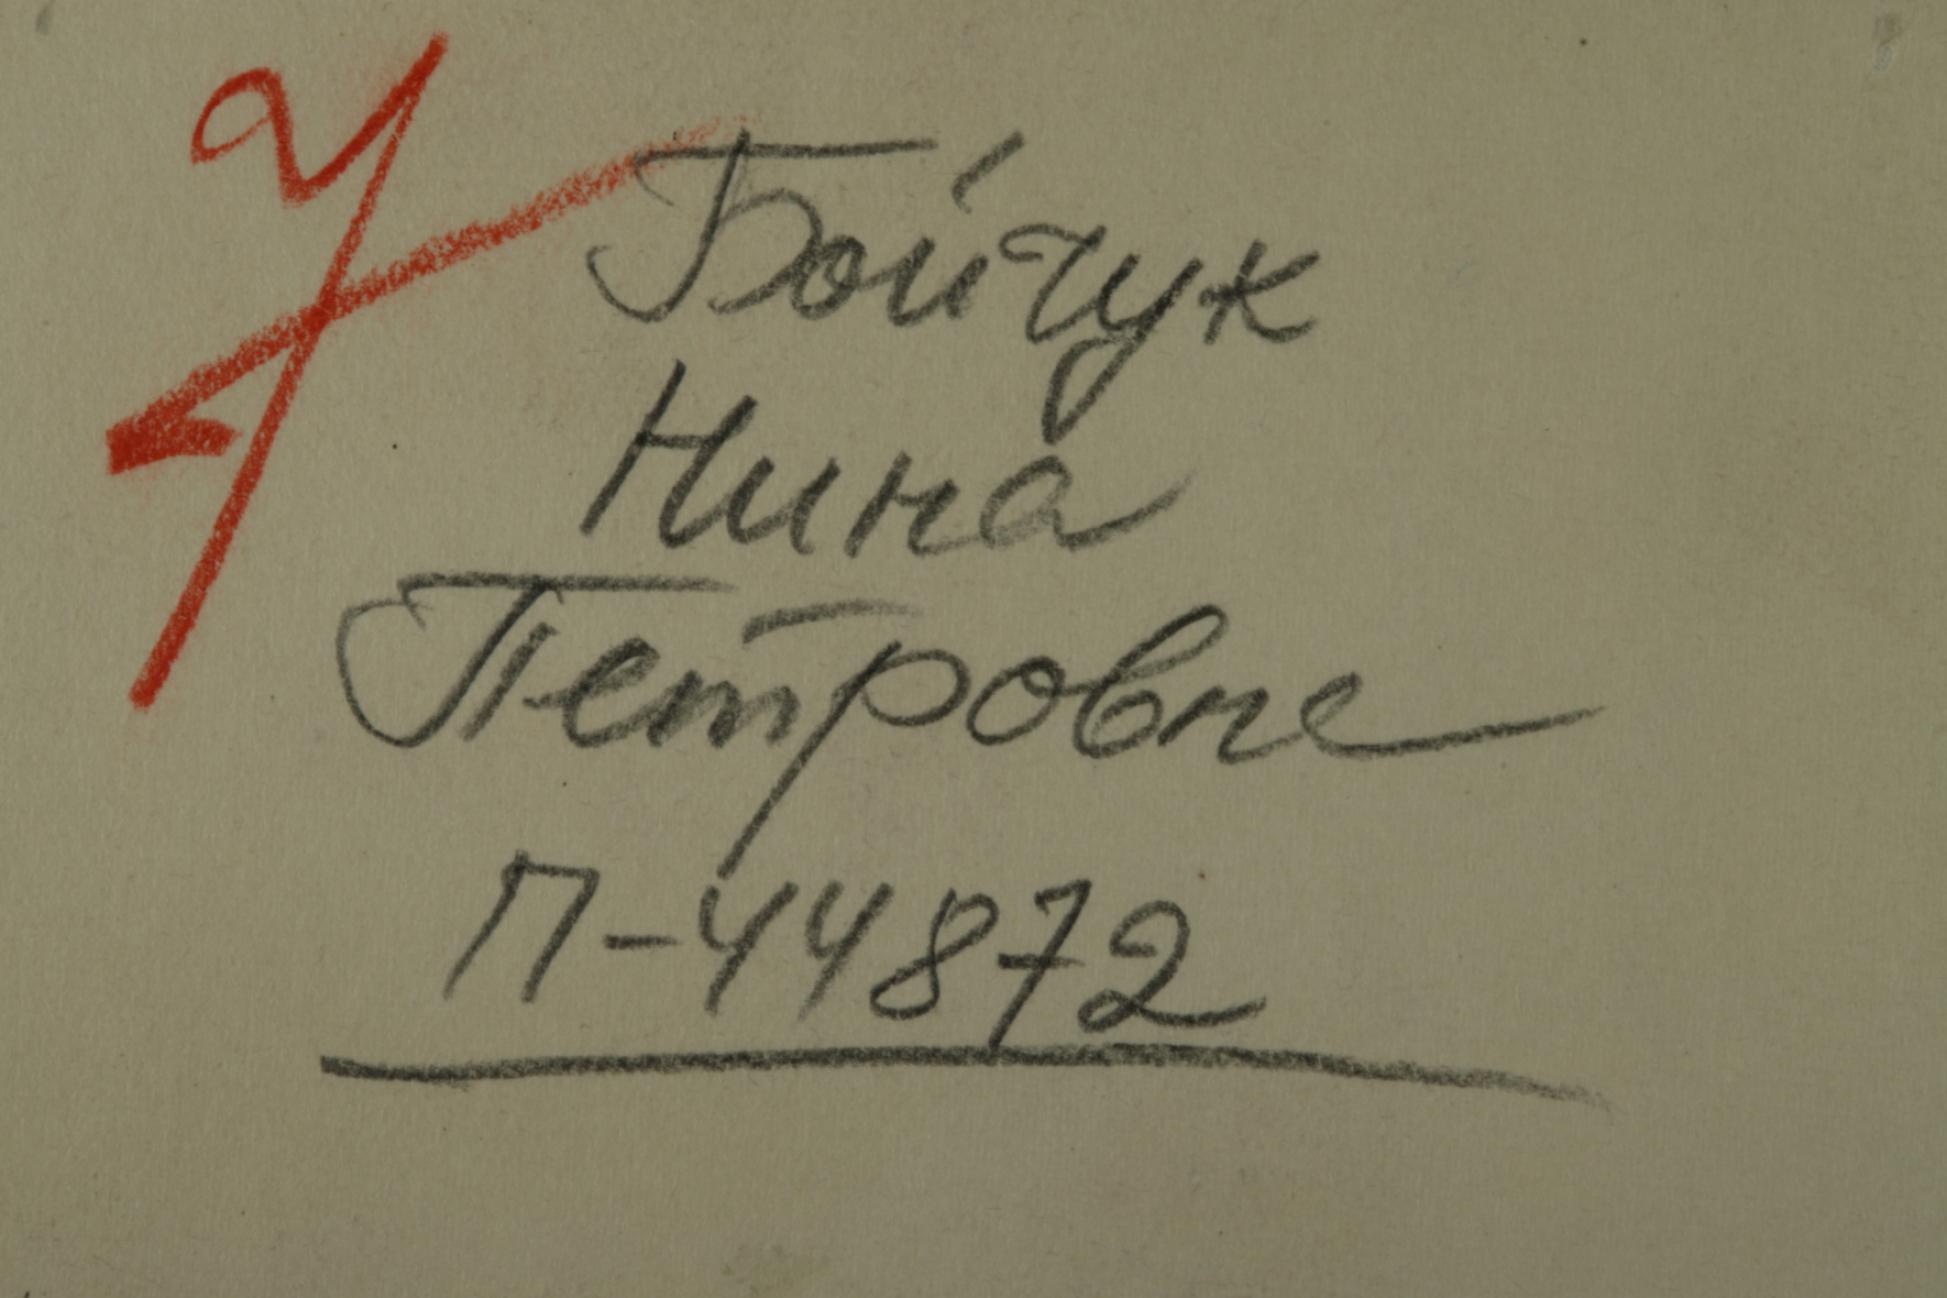 Бойчук
Нина
Петровне
П-44872